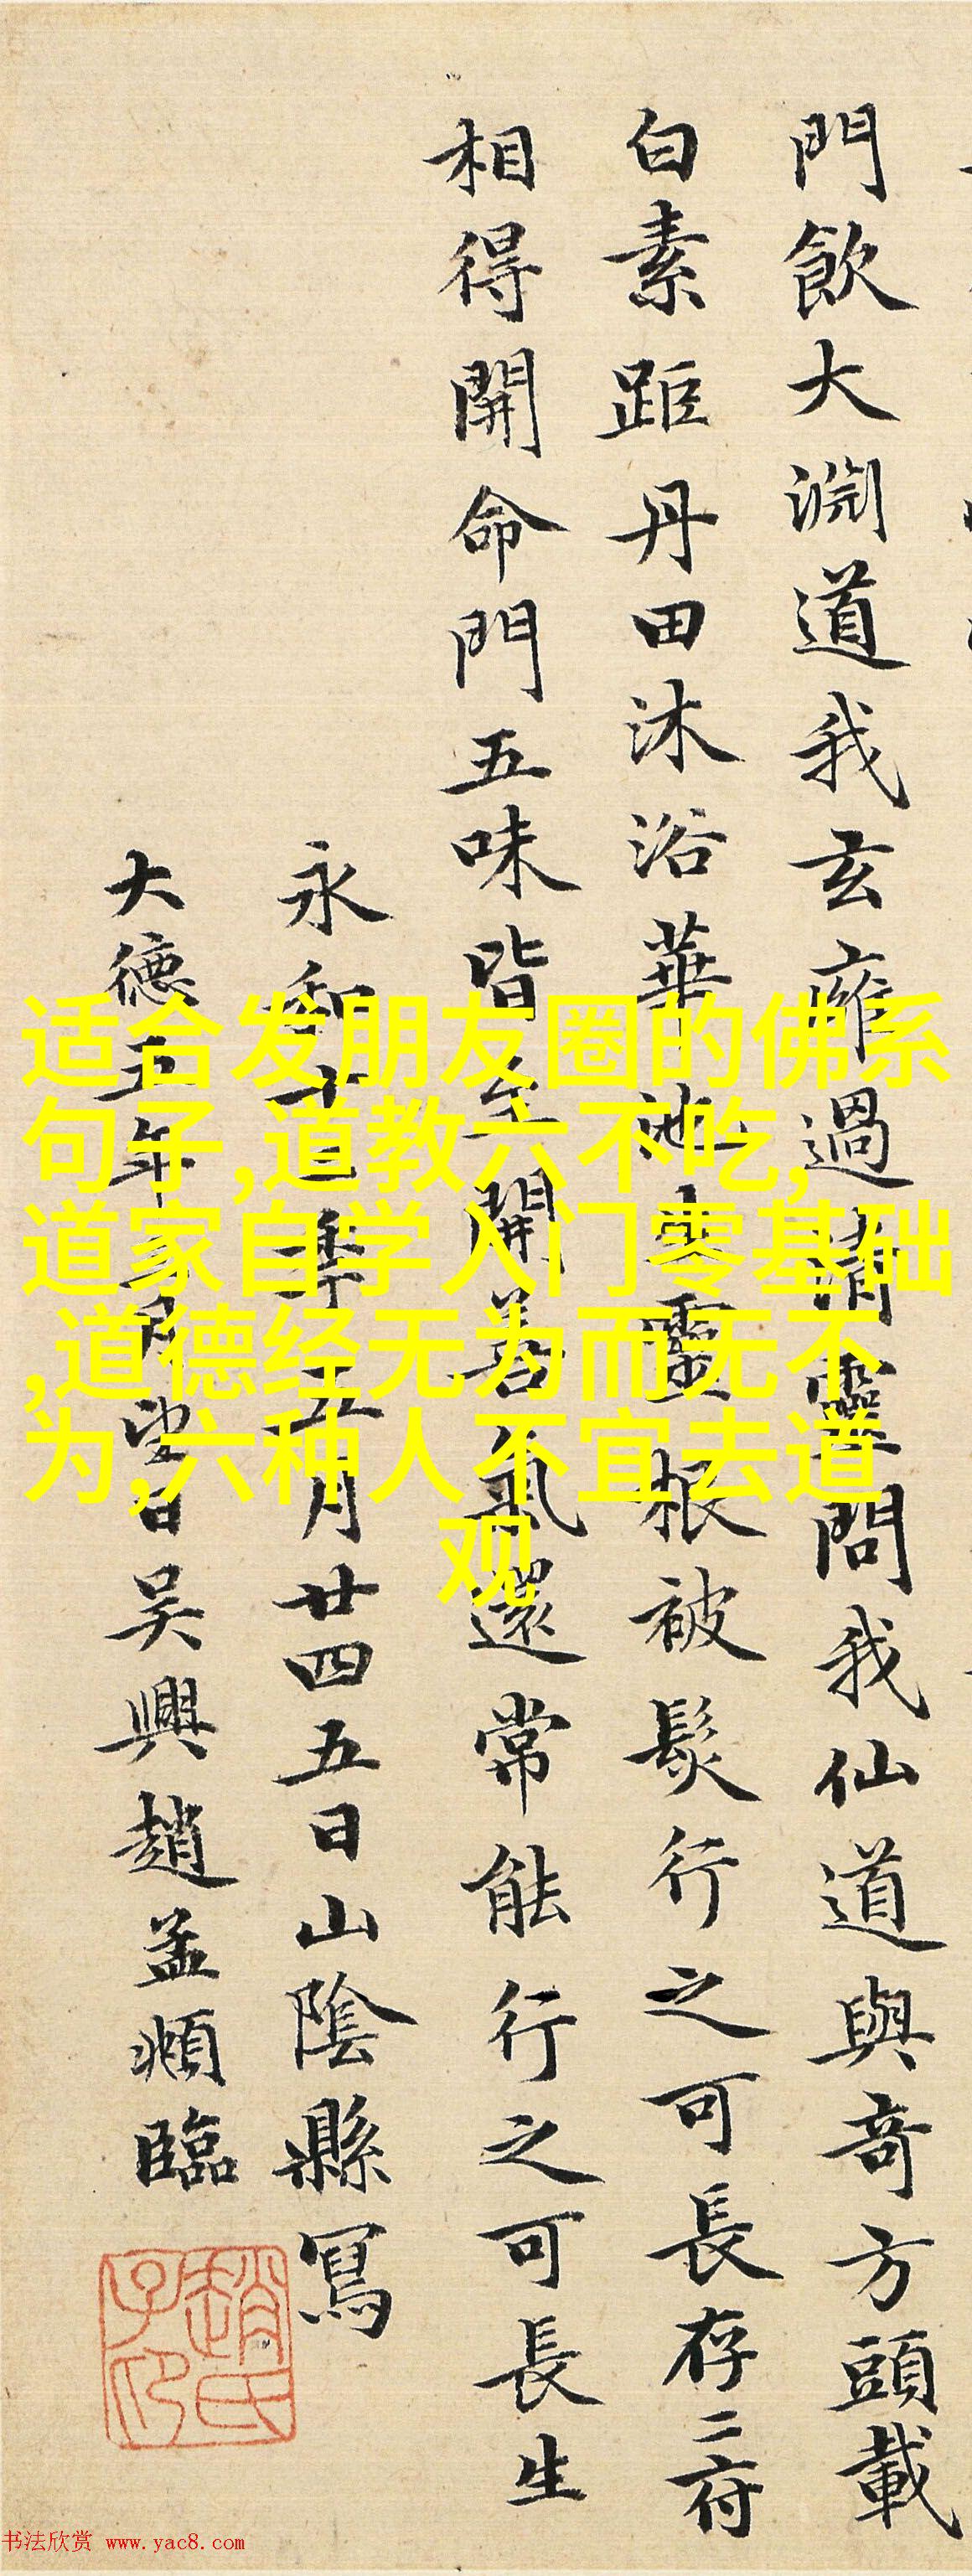 門飲大淵道我玄雍過清靈問我仙道與奇方頭載
白素距丹田沐浴華池生靈根被髮行之可長存二府
相得開命門五味皆至開善氣還常能行之可長生
永和十二年五月廿四五日山陰縣寫
大德五年
月望日吳興趙孟頫臨
趙氏子印
适合发朋友圈的佛系
句子,道教六不吃,
道家自学入门零基础
,道德经无为而无不
为,六种人不宜去道
观
书法欣赏 www.yac8.com